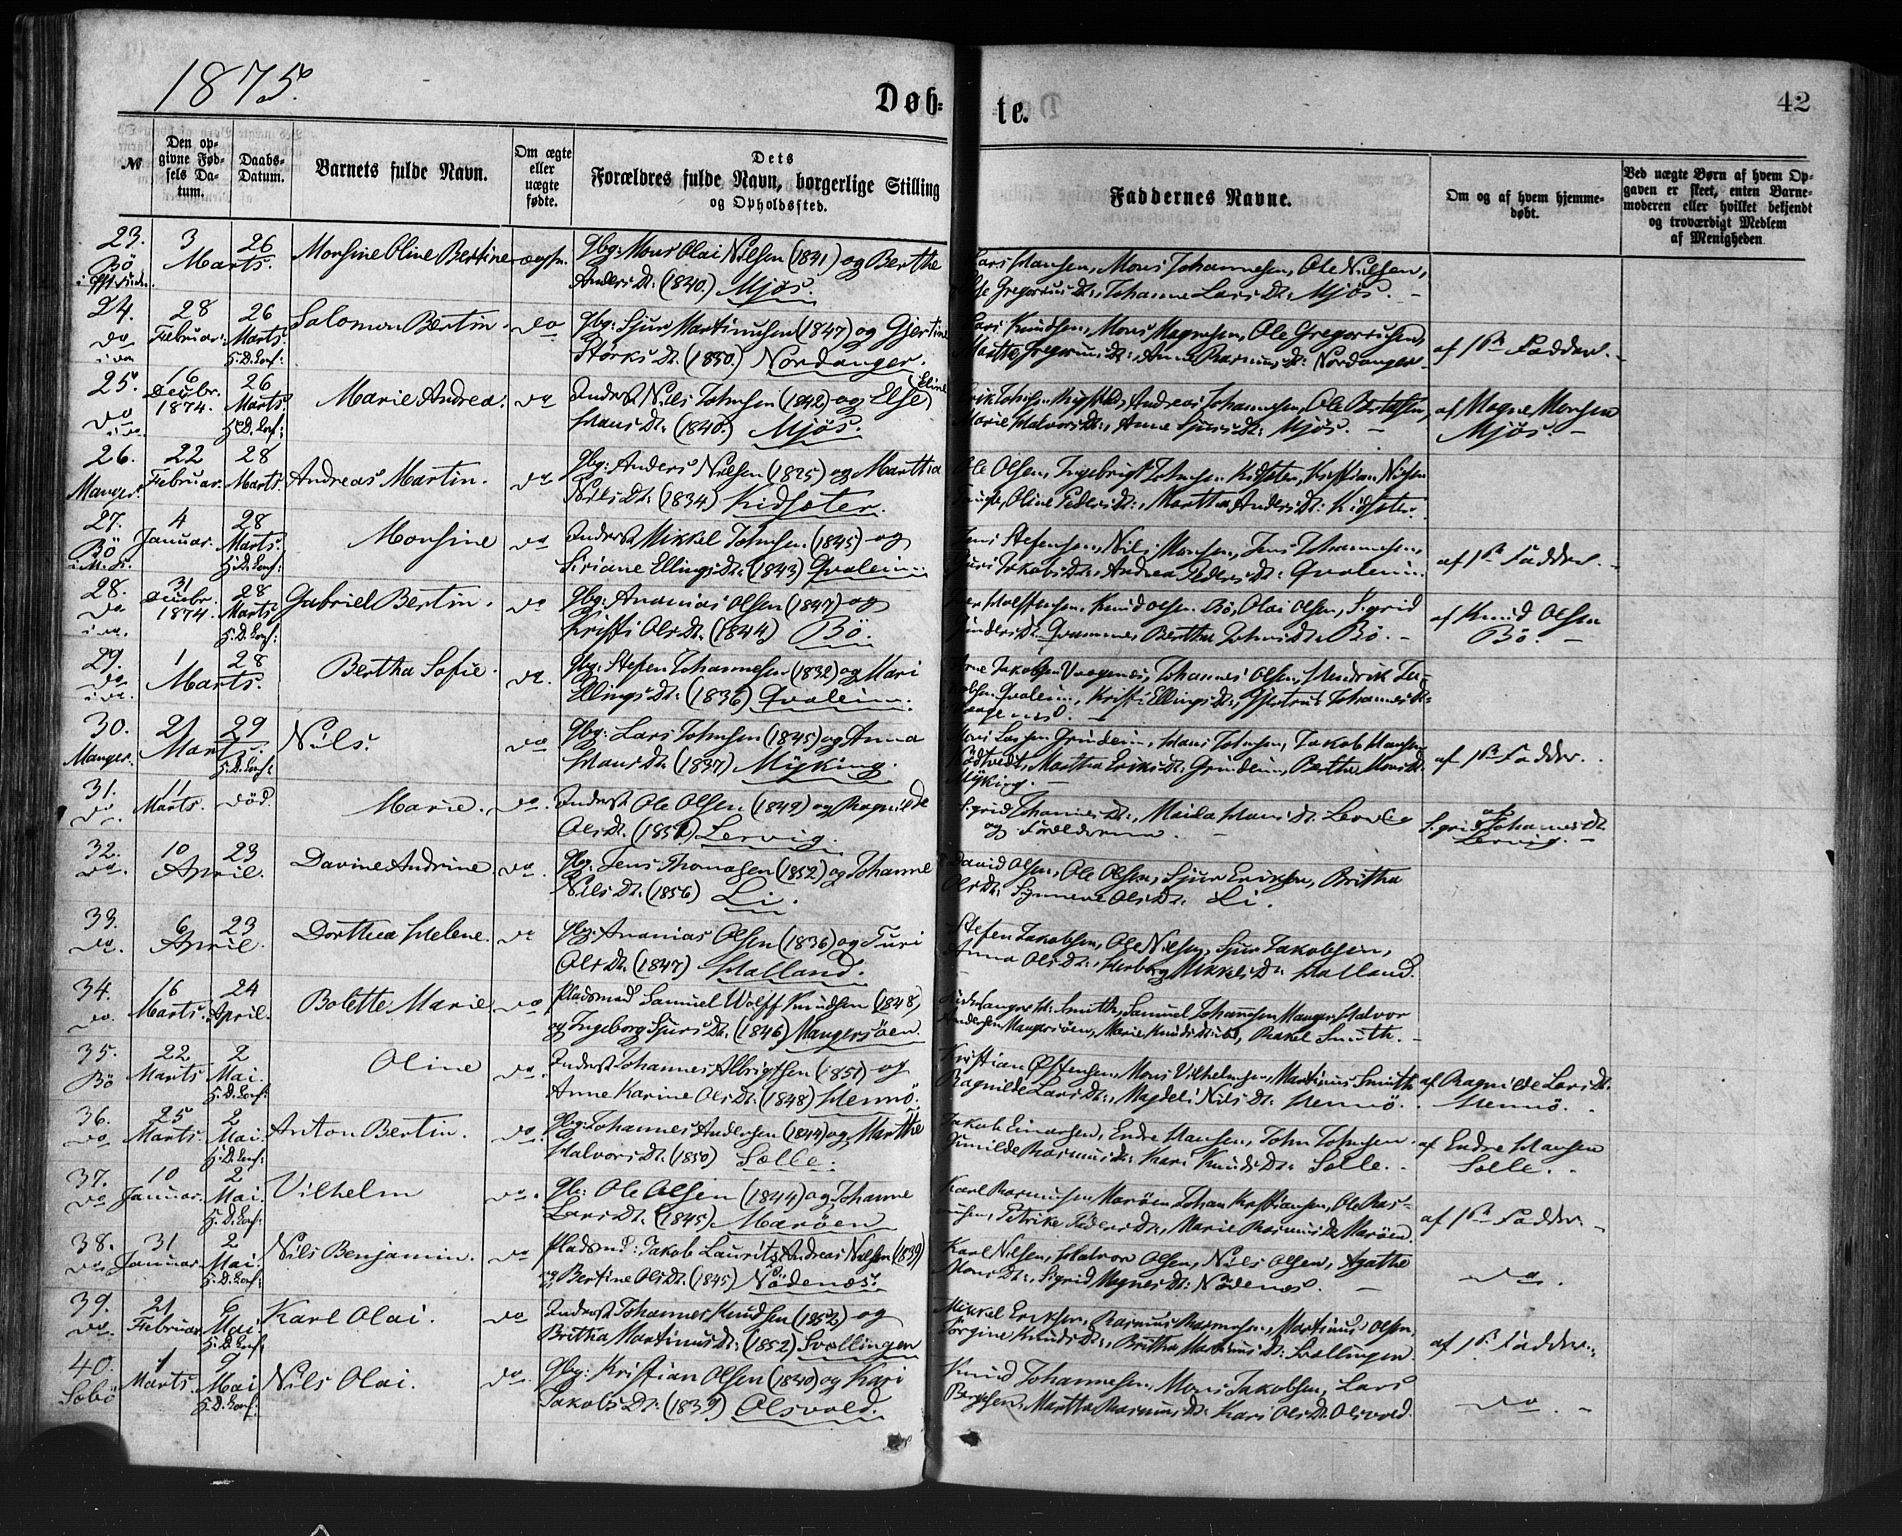 1875.
Døb-
te.
42
№
Den opgivne Fødsels Datum.
Daabs-Datum.
Barnets fulde Navn.
Om ægte eller uægte fødte.
Dets Forældres fulde Navn, borgerlige Stilling og Opholdssted.
Faddernes Navne.
Om og af hvem hjemmedøbt.
Ved uægte Børn af hvem Opgaven er skeet, enten Barnemoderen eller hvilket bekjendt og troværdigt Medlem af Menigheden
23. Bö 3 Marts. 26 Monsine Oline Bertine Gbg: Mons Olai Nilsen (1831) og Berthe
Anders Dt: (1840.) Mjøs.
Lars Hansen, Mons Johannesen, Ole Nilsen,
Gregorius Dt:, Johanne Lars Dt: Mjøs. -
24. do 28 Februar. 26 Marts. Salomon Bertin. do Gbg: Sjur Martinusen (1847) og Gjertine
Störks Dt: (1850.) Nordanger.
Lars Knudsen, Mons Magnesen, Ole Gregoriusen,
Marthe Gregorius Dt:, Anne Rasmus Dt: Nordanger.
af 1ste Fadder.
25. do 16 Decbr. 1874. 26 Marts. Marie Andrea. do Inderst Nils Johnsen (1842) og Else Eline
Hans Dt: (1840.) Mjøs.
Erik Johnsen, Andreas Johannesen, Ole
Marie Halvors Dt:, Anne Sjurs Dt: Mjøs. -
af Magne Monsen
Mjøs. -
26. Manger. 22 Februar. 28 Marts. Andreas Martin. do Gbg: Anders Nilsen (1825) og Martha
Nils Dt: (1834) Kidsæter.
Ole Olsen, Ingebrigt Johnsen Kidsæter, Kristian Nilsen
Oline Peders Dt:, Martha Anders Dt: Kidsæter.
27. Bö 4 Januar. 28 Marts. Monsine do Inderst Mikkel Johnsen (1845) og
Siriane Ellings Dt: (1843) Qvalem.
Jens Stefensen, Nils Monsen, Jens Johannesen,
Guri Jakobs Dt:, Andrea Peders Dt: Qvalem.
af 1ste Fadder.
28. do 31 Decbr. 1874 28 Marts. Gabriel Bertin. do Gbg: Ananias Olsen (1847) og
Kristi Ols Dt: (1844) Bö.
Knud Olsen Bö, Olai Olsen, Sigrid
Bertha Johns Dt: Bö. -
af Knud Olsen
Bö. -
29. do 1 Marts. 28 Bertha Sofie. do. Gbg: Stefen Johannesen (1832) og Mari
Ellings Dt: (1836) Qvalem.
Arne Jakobsen, Johannes Olsen, Hendrik
Qvalem, Kristi Ellings Dt:, Gjertrud Johannes Dt:
30. Manger. 21 Marts. 29 Nils. do Gbg: Lars Johnsen (1845) og Anna
Hans Dt: (1837) Myking.
Grindeim, Hans Johnsen, Jakob Hansen
Martha Eriks Dt: Grindeim, Berthe Mons Dt:
Myking.
af 1ste Fadder.
31. do. 11 Marts. död. Marie. do. Inderst Ole Olsen (1849) og Ragnilde
Ols Dt: (1851) Lervig.
Sigrid Johannes Dt:, Hans Dt: Lervig
og Forældrene. -
af Sigrid Johannes Dt
Lervig. -
32. do. 10 April. 23 Davine Andrine. do. Gbg: Jens Thomasen (1852) og Johanne
Nils Dt: (1856) Li.
David Olsen, Ole Olsen, Sjur Eriksen, Britha
Ols Dt: Synneve Ols Dt: Li.
33. do. 6 April. 23 Dorthea Helene. do Gbg: Ananias Olsen (1836) og Turi
Ols Dt: (1847) Halland.
Stefen Jakobsen, Ole Nilsen, Sjur Jakobsen,
Anna Ols Dt:, Herborg Mikkels Dt: Halland.
34. do. 16 Marts. 24 April. Bolette Marie do Pladsmd. Samuel Wolff Knudsen (1848)
og Ingeborg Sjurs Dt: (1846) Mangersöen.
Smith, Samuel Johansen Manger, Halvor
Andersen Mangersöen, Marie Knuds Dt:, Rakel Smith. -
35. Bö 22 Marts. 2 Mai. Oline do. Inderst Johannes Albrigtsen (1851) og
Anne Karine Ols Dt: (1848) Hennö.
Kristian Östensen, Mons Vilhelmsen, Martinus Smith
Ragnilde Lars Dt:, Magdeli Nils Dt: Hennö. -
af Ragnilde Lars Dt:
Hennö.
36. do. 25 Marts. 2 Mai. Anton Bertin. do. Gbg: Johannes Andersen (1844) og Marthe
Halvors Dt: (1850) Sælle.
Jakob Einarsen, Endre Hansen, John Johnsen
Gunilde Rasmus Dt: Kari Knuds Dt: Sælle. -
af Endre Hansen
Sælle.
37. do 10 Januar. 2 Mai. Vilhelm do. Gb: Ole Olsen (1844) og Johanne
Lars Dt: (1845) Maröen
Karl Rasmusen Maröen, Johan Kristiansen, Ole Rasmusen,
Petrike Peders Dt:, Marie Rasmus Dt: Maröen.
af 1ste Fadder. -
38. do. 31 Januar. 2 Mai. Nils Benjamin. do Pladsmd: Jakob Laurits Andreas Nilsen (1839)
og Bertine Ols Dt: (1845) Nödenæs.
Karl Nilsen, Halvor Olsen, Nils Olsen, Agathe
Mons Dt:, Sigrid Magnes Dt: Nödenæs. -
do.
39. do. 21 Februar. 6 Mai. Karl Olai. do Inderst Johannes Knudsen (1852) og
Britha Martinus Dt: (1852) Svellingen
Mikkel Eriksen, Rasmus Rasmusen, Martinus Olsen,
Jörgine Knuds Dt:, Britha Martinus Dt: Svellingen.
af 1ste Fadder.
40. Sæbö 1 Marts. 9 Mai Nils Olai. do. Gbg: Kristian Olsen (1840) og Kari
Jakobs Dt: (1839) Olsvold.
Knud Johannesen, Mons Jakobsen, Lars
Martha Rasmus Dt: Kari Ols Dt: Olsvold.
do. -